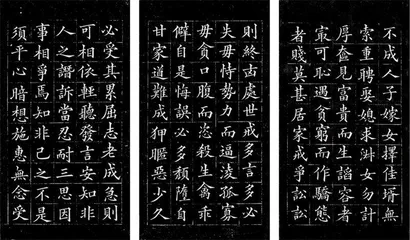 不成人子嫁女擇佳婿無
索重聘娶媳求淑女勿計
厚奩見富貴而生諂容者
最可恥遇貧窮而作驕態
者賤莫甚居家戒爭訟訟
則終凶處世戒多言多必
失毋恃勢力而逼凌孤寡
毋貪口腹而恣殺生禽乖
僻自是悔誤必多頹隳自
甘家道難成狎暱惡少久
必受其累屈志老成急則
可相依輕聽發言安知非
人之譖訴當忍耐三思因
事相爭焉知非己之不是
須平心暗想施惠無念受